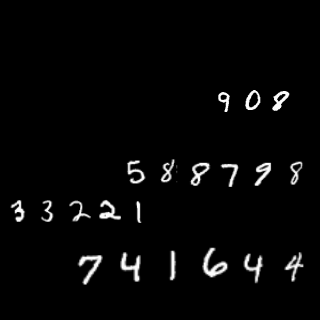 908
588798
33221
741644